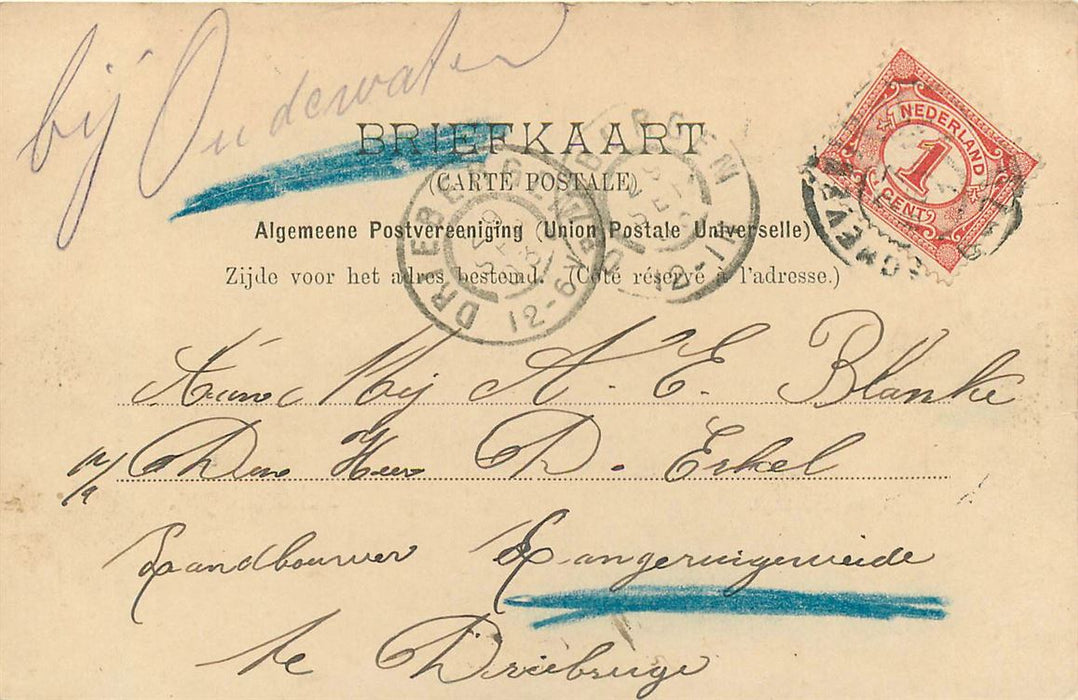 bij Oudewater
BRIEFKAART
(CARTE POSTALE)
NEDERLAND
1
CENT
DRIEBERGEN
12-6V
DRIEBERGEN
12-1
Algemeene Postvereeniging (Union Postale Universelle)
Zijde voor het adres bestemd. (Côté réservé à l'adresse.)
Mej A. E. Blanke
Den Heer D. Erkel
Landbouwer Langeruigeweide
te Driebruge